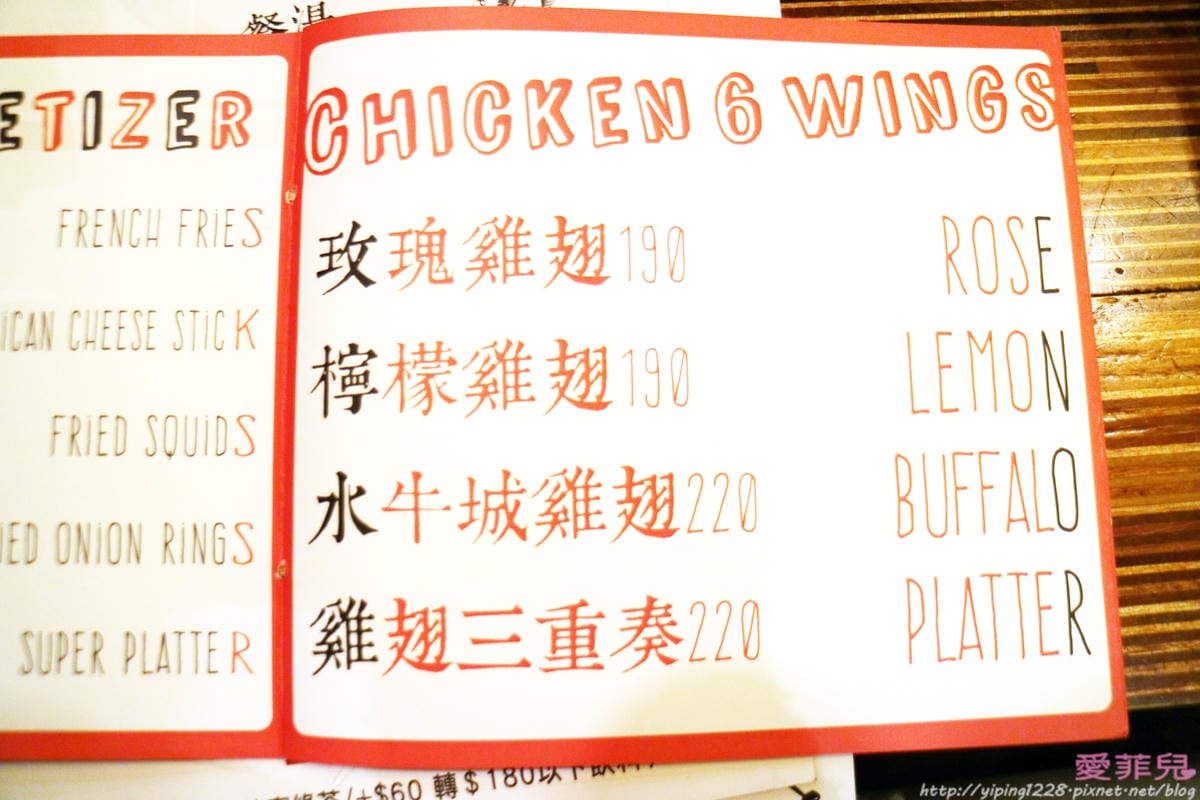 餐湯
ETIZER
FRENCH FRIES
ICAN CHEESE STICK
FRIED SQUIDS
IED ONION RINGS
SUPER PLATTER
CHICKEN 6 WINGS
玫瑰雞翅190 ROSE
檸檬雞翅190 LEMON
水牛城雞翅220 BUFFALO
雞翅三重奏220 PLATTER
/+$60 轉$180以下飲料
愛菲兒
http://yiping1228.pixnet.net/blog